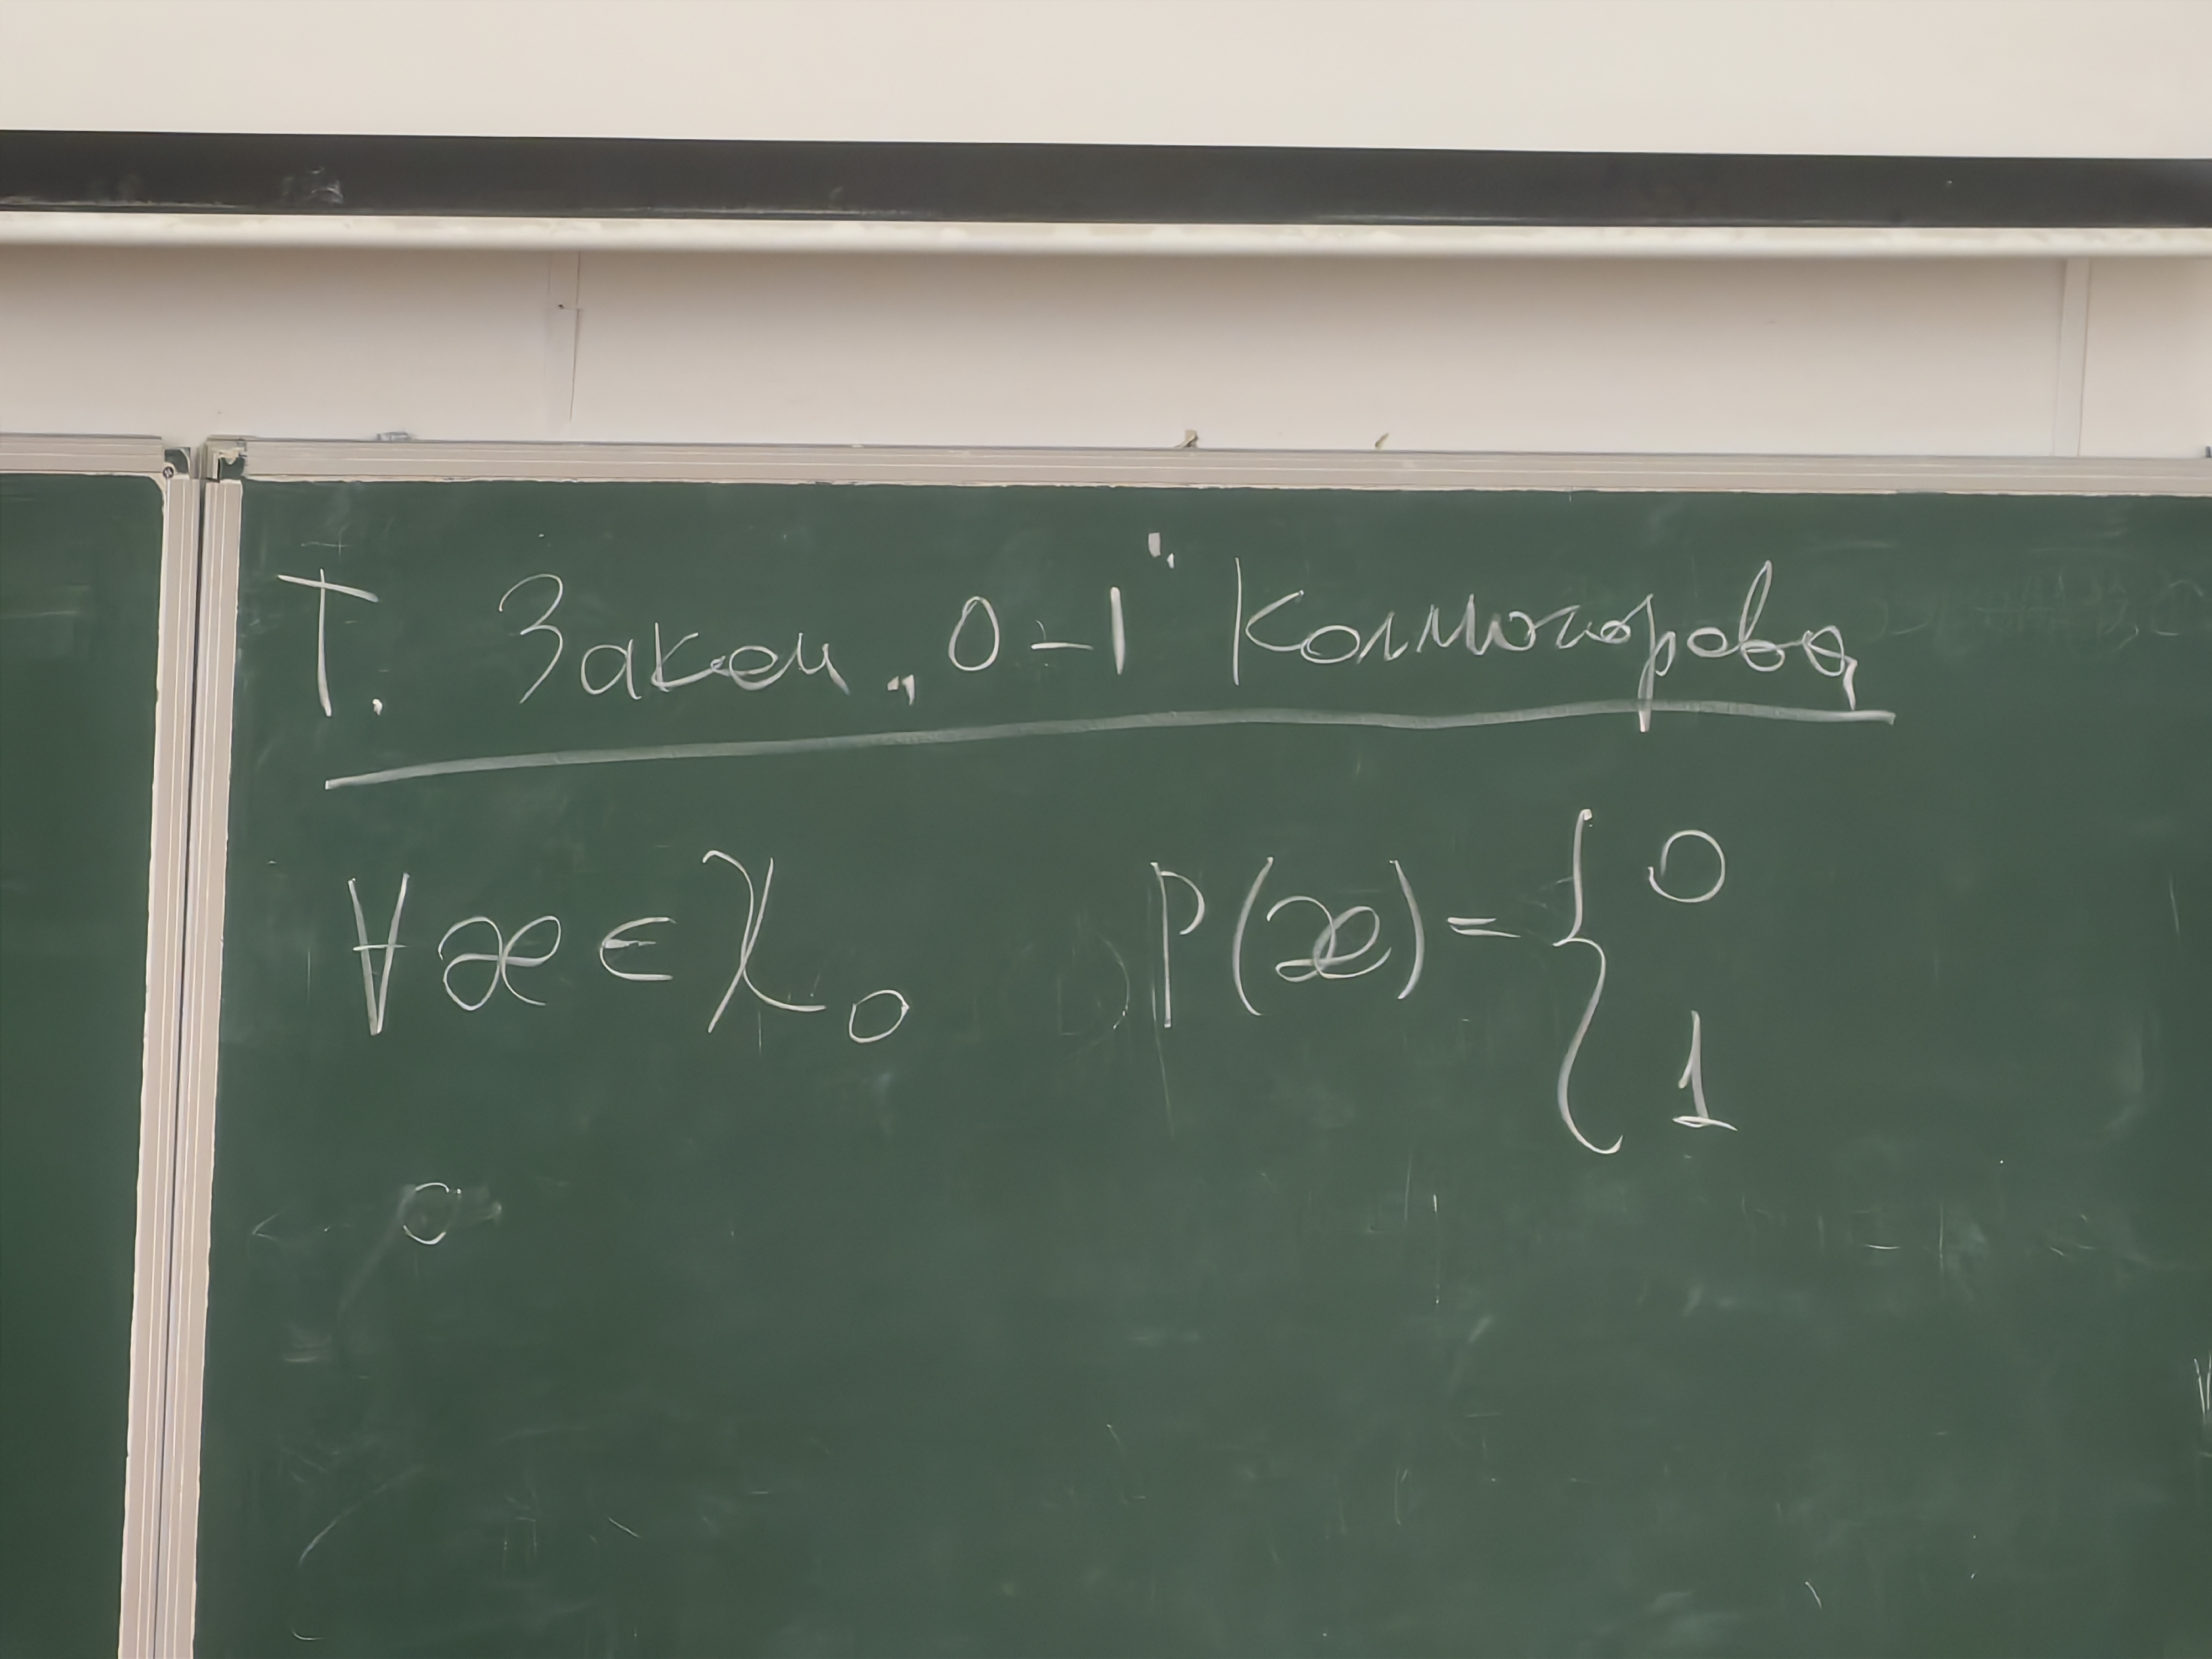 Т. Закон „0-1" Колмогорова
∀ æ ∈ χ₀ P(æ) = { 0
1